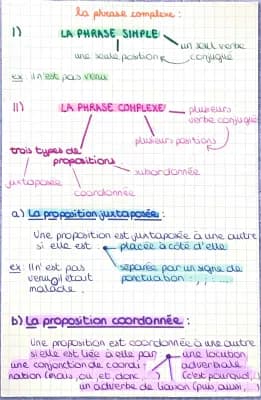 la phrase complexe :
I) LA PHRASE SIMPLE
un seul verbe
une seule position conjugué
ex : il n'est pas venu
II) LA PHRASE COMPLEXE
plusieurs
verbe conjugué
plusieurs positions
trois types de
propositions
subordonnée
juxtaposée
coordonnée
a) La proposition juxtaposée :
Une proposition est juxtaposée à une autre
si elle est : placée à côté d'elle
ex : Il n'est pas séparée par un signe de
venu, il était ponctuation : , ; : ...
malade.
b) La proposition coordonnée :
Une proposition est coordonnée à une autre
si elle est liée à elle par une locution
une conjonction de coordi adverbiale
nation (mais, ou, et, donc...) (c'est pourquoi,...)
un adverbe de liaison (puis, aussi,...)